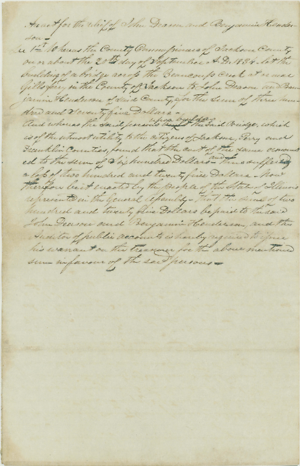 An act for the relief of John Deason and Benjamin Hender
son —
Whereas the County Commissioners of Jackson County
on or about the 20th day of September A.D. 1834 let the
building of a bridge across the Beaucoup Creek at
in the County of Jackson to John Deason and Ben
jamin Henderson of said County for the sum of three hun
dred and Seventy five Dollars —
And whereas the said persons built the said Bridge, which
is of the utmost utility to the citizens of Jackson, Perry and
Franklin Counties, found that the cost of the same amount
ed to the sum of Six hundred Dollars
a loss of two hundred and twenty five Dollars — Now
therefore be it enacted by the people of the State of Illinois
represented in the General Assembly — that the sum of two
hundred and twenty five Dollars be paid to the said
John Deason and Benjamin Henderson, and the
Auditor of public accounts is hereby required to issue
his warrant on the treasurer for the above mentioned
sum in favour of the said persons —